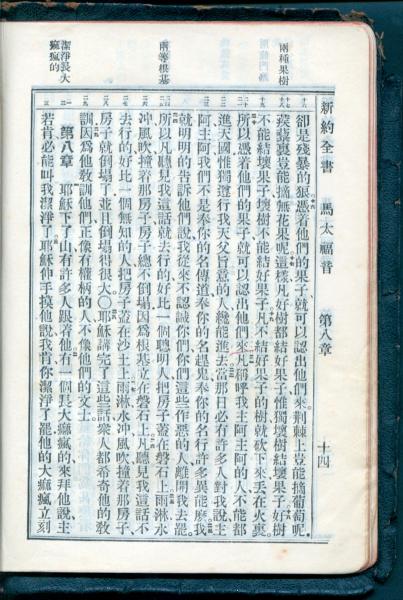 新約全書 馬太福音 第八章 十四
兩種果樹
兩等根基
潔淨長大
痲瘋的
卻是殘暴的狼、憑着他們的果子就可以認出他們來、荊棘上豈能摘葡萄呢、
蒺藜裏豈能摘無花果呢、這樣凡好樹都結好果子、惟獨壞樹結壞果子、好樹
不能結壞果子、壞樹不能結好果子、凡不結好果子的樹就砍下來、丟在火裏、
所以憑着他們的果子就可以認出他們來、凡稱呼我主阿主阿的人、不能都
進天國、惟獨遵行我天父旨意的人、纔能進去、當那日必有許多人對我說、主
阿主阿、我們不是奉你的名傳道、奉你的名趕鬼、奉你的名行許多異能麼、我
就明明的告訴他們說、我從來不認識你們、你們這些作惡的人、離開我去罷、
所以凡聽見我這話就去行的、好比一個聰明人把房子蓋在磐石上、雨淋水
冲風吹撞着那房子、房子總不倒塌、因爲根基立在磐石上、凡聽見我這話不
去行的、好比一個無知的人、把房子蓋在沙土上、雨淋水冲風吹撞着那房子、
房子就倒塌了、並且倒塌得很大、○耶穌講完了這些話、衆人都希奇他的教
訓、因爲他教訓他們、正像有權柄的人、不像他們的文士、
第八章 耶穌下了山、有許多人跟着他、有一個長大痲瘋的來拜他說、主
若肯必能叫我潔淨了、耶穌伸手摸他說、我肯、你潔淨了罷、他的大痲瘋立刻